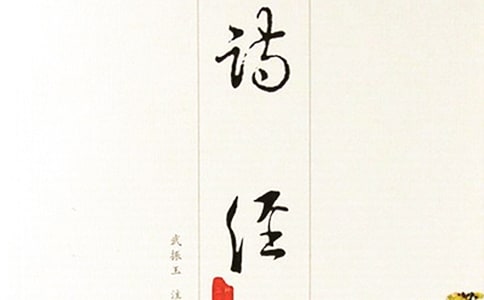 诗经
武振玉 注